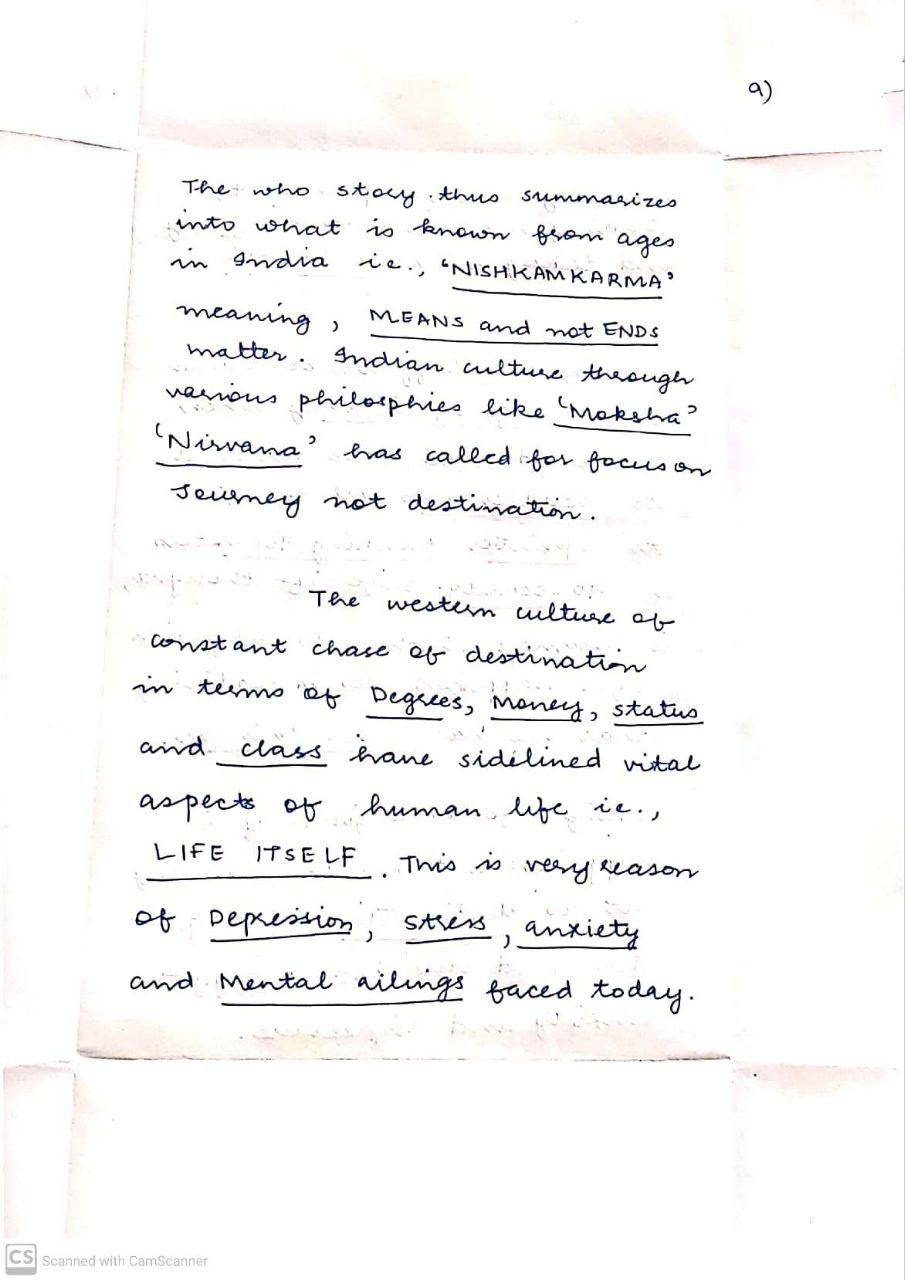 9)
The who story thus summarizes
into what is known from ages
in India ie., 'NISHKAMKARMA'
meaning, MEANS and not ENDS
matter. Indian culture through
various philosphies like 'Moksha'
'Nirvana' has called for focus on
Journey not destination.
The western culture of
constant chase of destination
in terms of Degrees, Money, status
and class have sidelined vital
aspects of human life ie.,
LIFE ITSELF. This is very reason
of Depression, stress, anxiety
and Mental ailings faced today.
CS Scanned with CamScanner